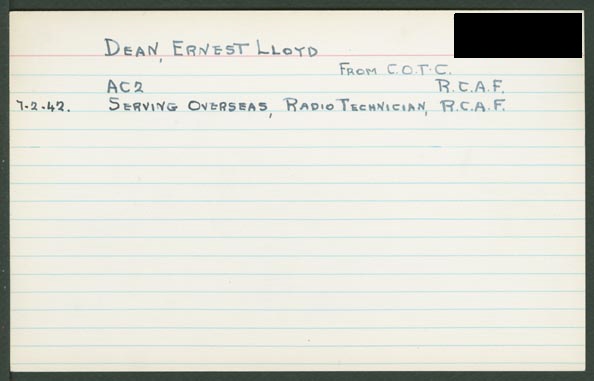 DEAN, ERNEST LLOYD
FROM C.O.T.C.
AC2 R.C.A.F.
7-2-42. SERVING OVERSEAS, RADIO TECHNICIAN, R.C.A.F.